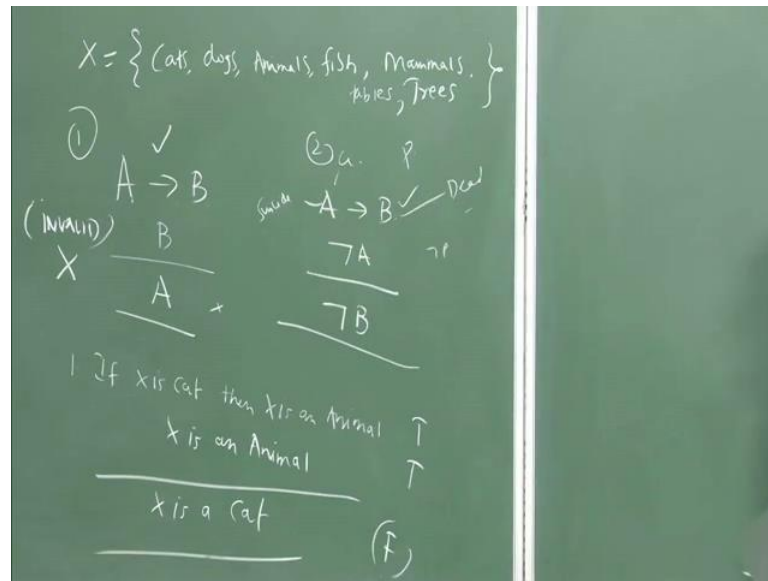 X = { Cats, dogs, Animals, fish, Mammals,
tables, Trees }
① ✓
A → B
(INVALID) B
X A ×
② a. P
Suicide A → B ✓ Dead
¬A ¬P
¬B
1 If X is Cat then X is an Animal T
X is an Animal T
X is a Cat (F)